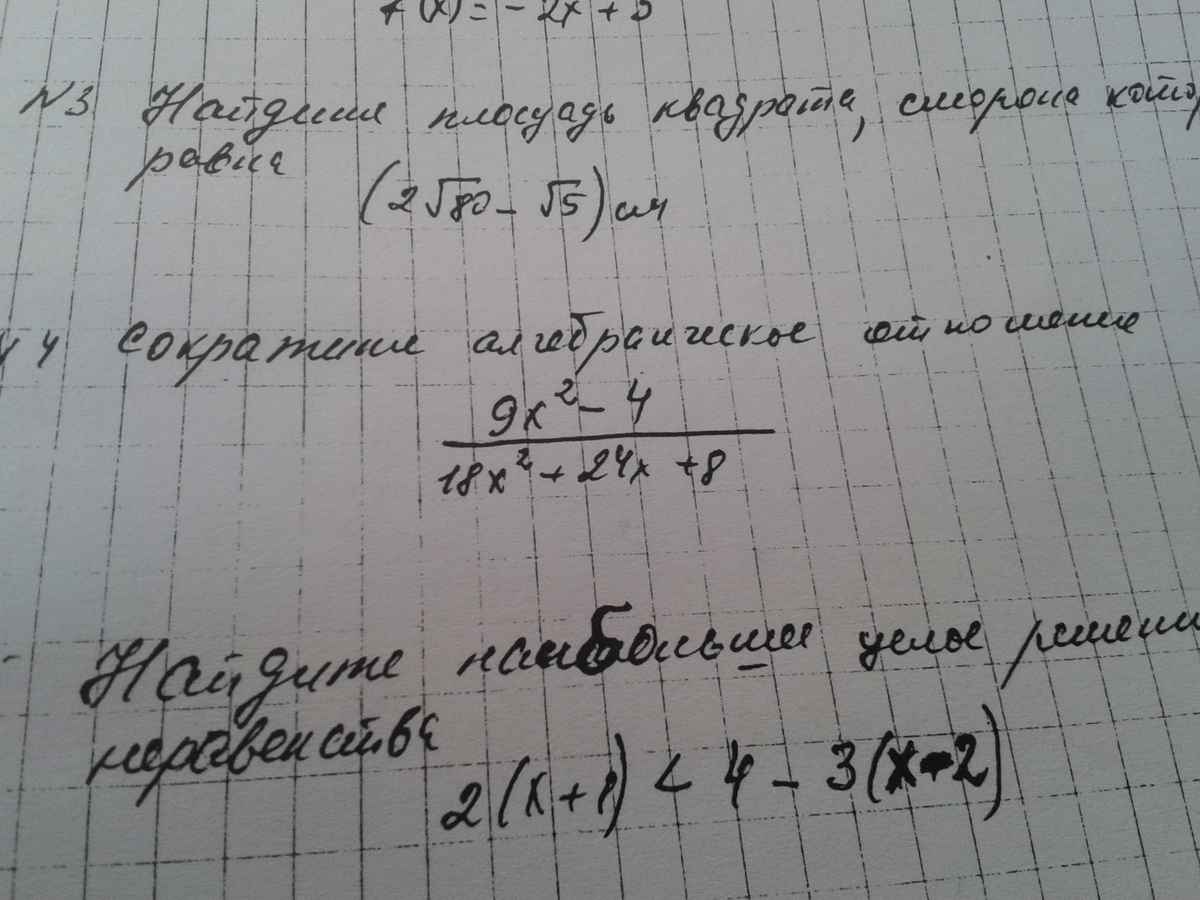 f(x) = - 2x + 5
N3 Найдите площадь квадрата, сторона котор
равна
(2√80 - √5) см
4 Сократите алгебраическое отношение
9x² - 4
18x² + 24x + 8
Найдите наибольшее целое решени
неравенства
2(x+1) < 4 - 3(x-2)